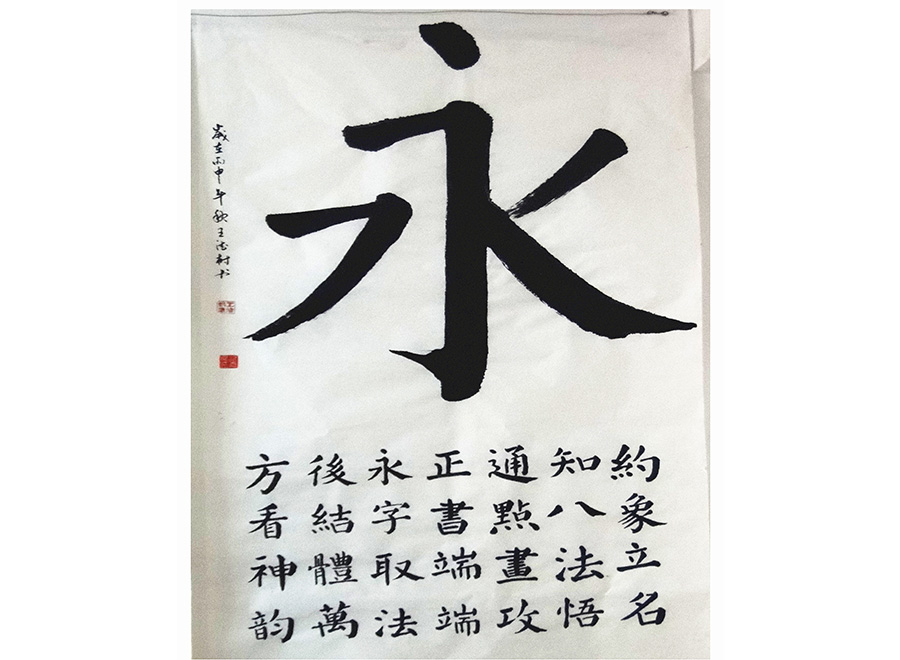 永
約象立名
知八法悟
通點畫攻
正書端端
永字取法
後結體萬
方看神韵
歲在丙申年秋王法村书